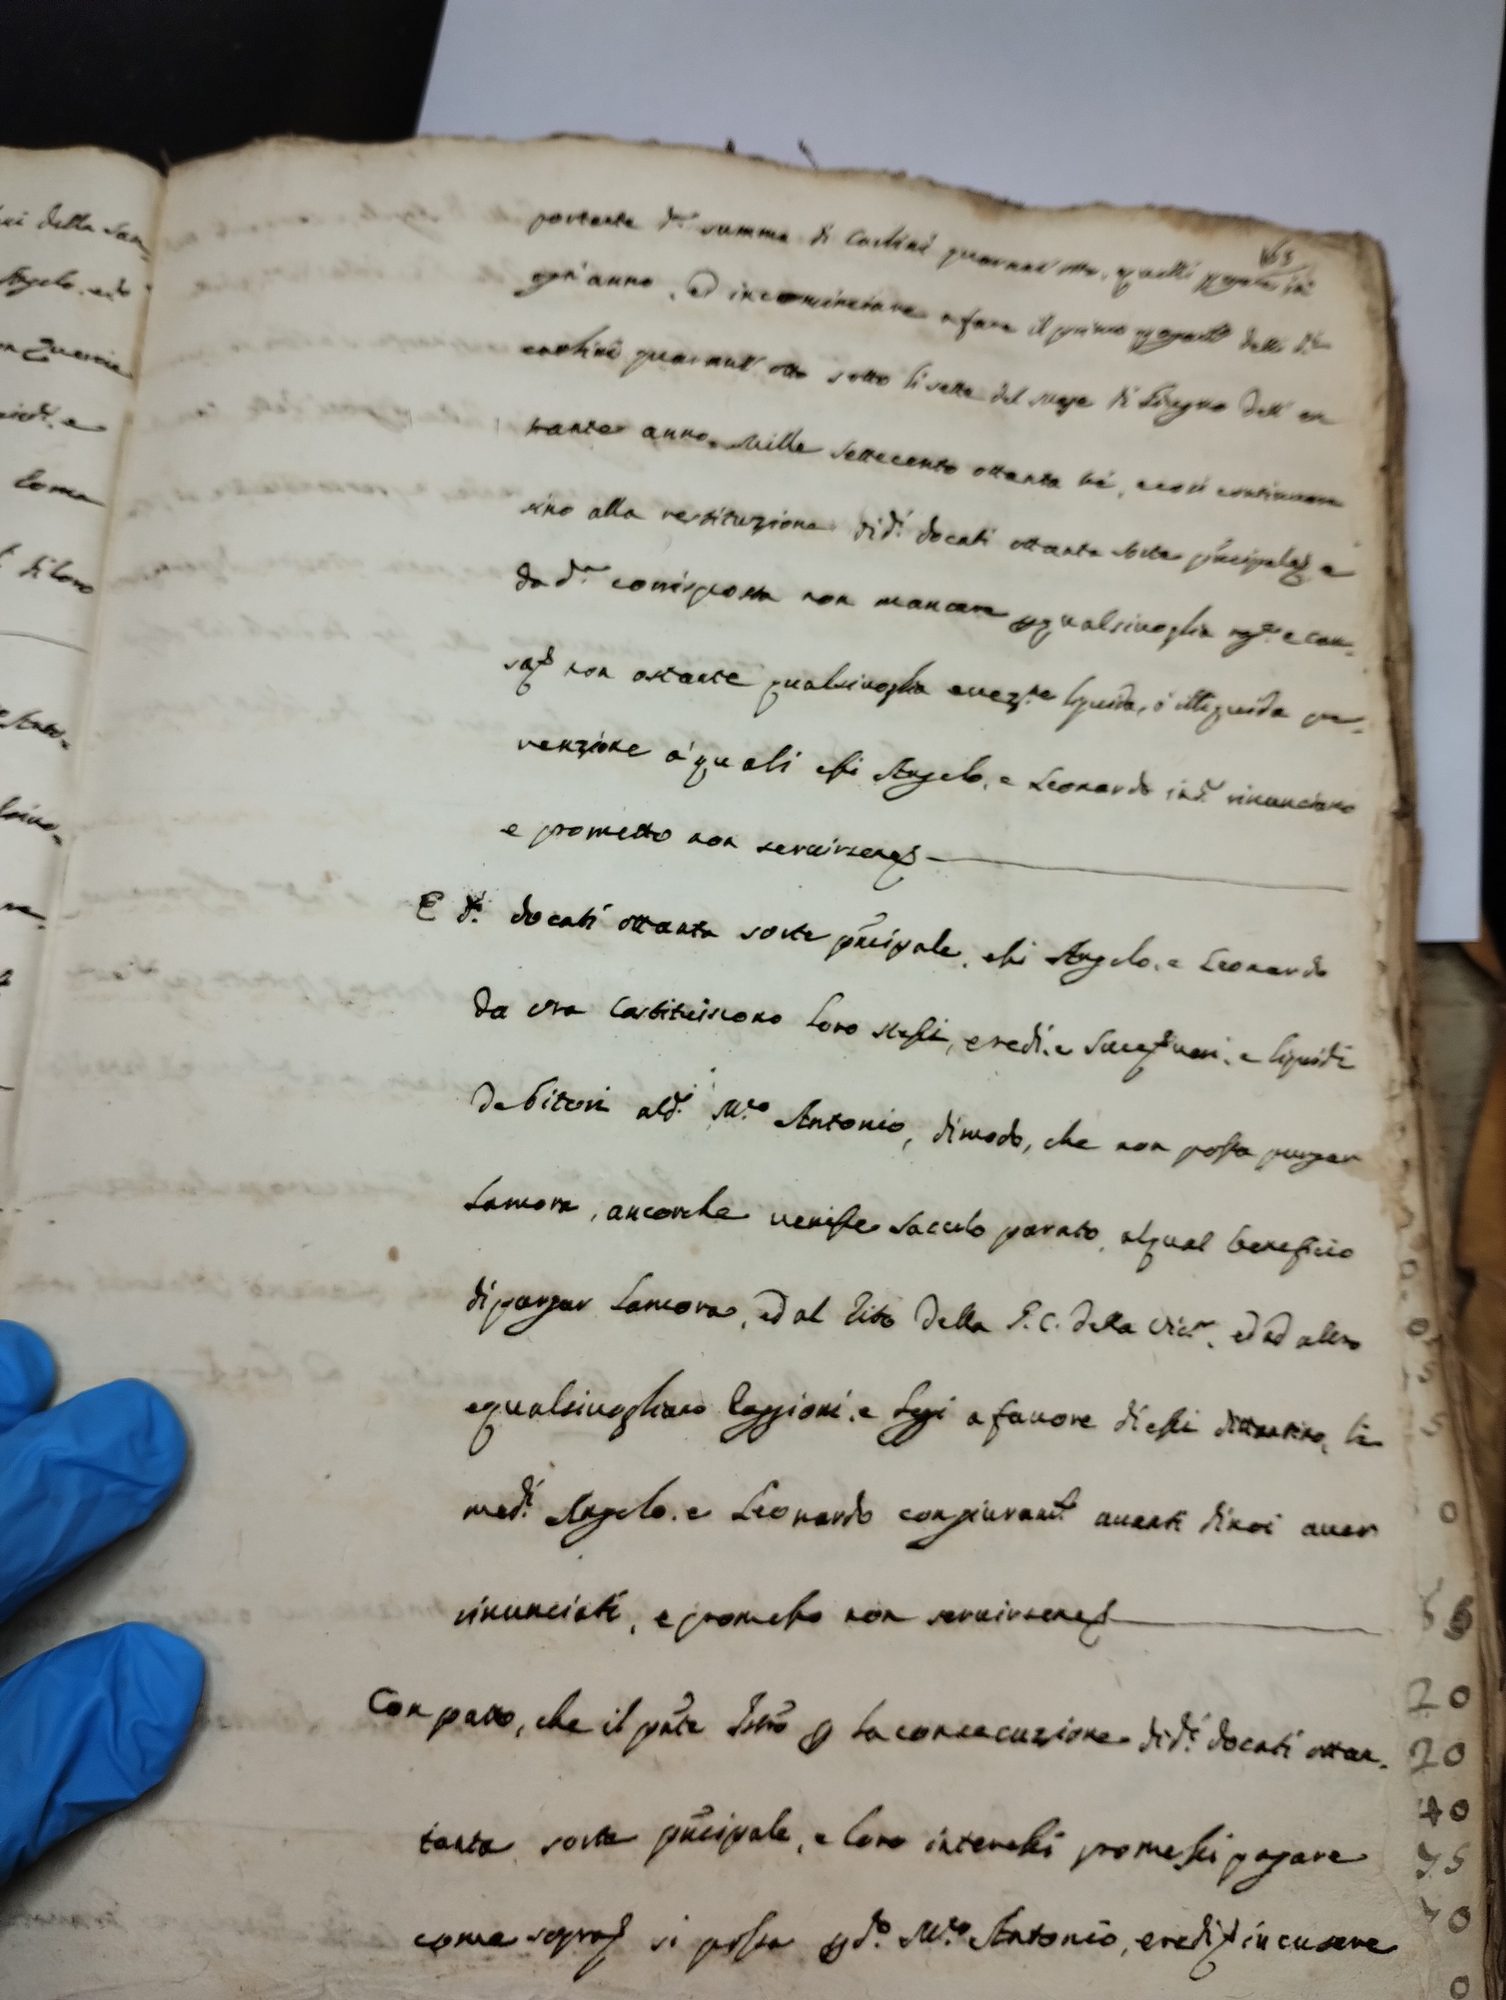 163
portante d.ª summa di Carlini quarant'otto, quelli pagare in
ogn'anno, ed incominciare a fare il primo pagam.to delli d.i
carlini quarant'otto sotto li sette del mese di Giugno dell'en
trante anno mille settecento ottanta trè, e così continuare
sino alla restituzione di d.i docati ottanta sorte prncipale, e
da d.ª corrisposta non mancare per qualsivoglia rag.ne e cau-
sa, non ostante qualsivoglia eccez.ne liquida, ò illiquida pre-
venzione à quali essi Angelo, e Leonardo in d.º rinunciano
e prometto non servirsene
E d.i docati ottanta sorte prncipale, essi Angelo, e Leonardo
da ora Costituiscono loro stessi, eredi, e Successori, e liquidi
debitori al d.º M.ro Antonio, di modo, che non possa purgar
la mora, ancorche venisse sacculo parato, al qual beneficio
di purgar la mora, ed al Rito della G. C. della Vic.ª, ed ad altro
e qualsivogliano Raggioni, e Leggi a favore di essi dittantino, li
med.i Angelo, e Leonardo con giuram.to avanti di noi aver
rinunciati, e promesso non servirsene
Con patto, che il pnte Istro per la consecuzione di d.i docati ottan-
tanta sorte prncipale, e loro interessi promessi pagare
come sopra si possa per d.º M.ro Antonio, eredi, incusare
della San
Angelo, e
e
loro
20
20
40
75
70
0